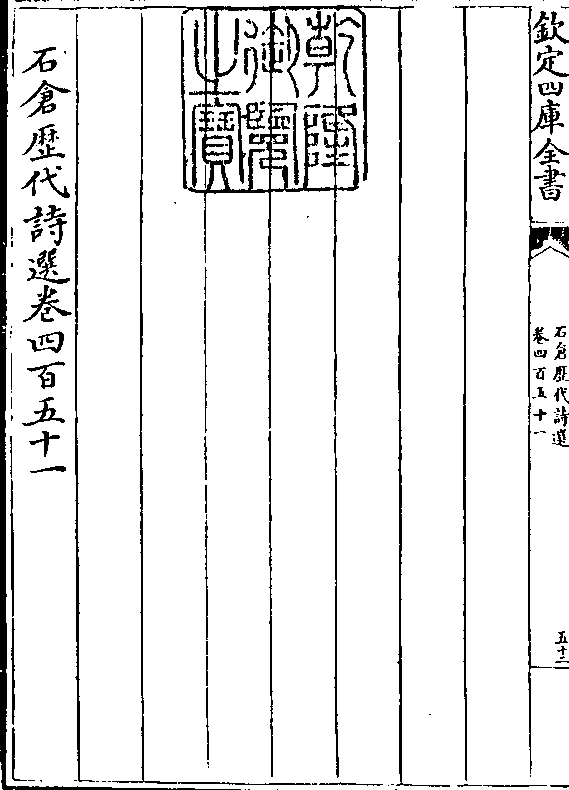 欽定四庫全書
石倉歷代詩選
卷四百五十一
五十二
乾隆御覽之寶
石倉歷代詩選卷四百五十一